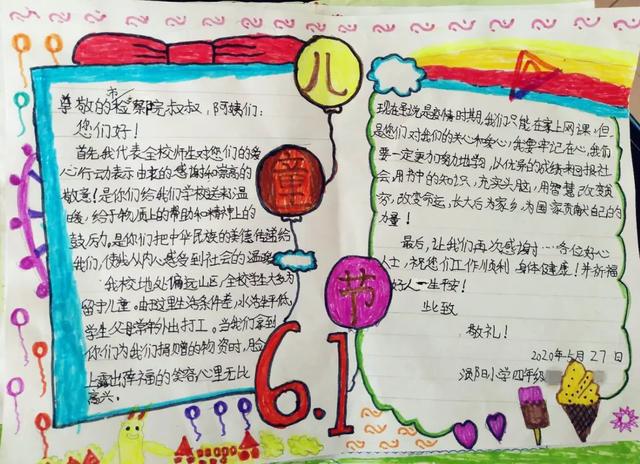 儿
童
节
6.1
尊敬的市检察院叔叔,阿姨们:
您们好!
首先我代表全校师生对您们的爱
心行动表示由衷的感谢和崇高的
敬意!是你们给我们学校送来温
暖,给予物质上的帮助和精神上的
鼓励。是你们把中华民族的美德传递给
我们,使我从内心感受到社会的温暖
我校地处偏远山区,全校学生大多为
留守儿童。由于这里生活条件差,水活平低,
学生父母常年外出打工。当我们拿到
你们为我们捐赠的物资时,脸
上露出幸福的笑容心里无比
高兴。
现在虽说是疫情时期,我们只能在家上网课,但
是您们对我们的关心和爱心,我要牢记在心,我们
要一定更加努力地学习,以优异的成绩来回报社
会,用书中的知识,充实头脑,用智慧改变贫
穷,改变命运,长大后为家乡,为国家贡献自己的
力量!
最后,让我们再次感谢…各位好心
人士,祝您们工作顺利 身体健康!并祈福
好人一生平安!
此致
敬礼!
2020年5月27日
小学四年级